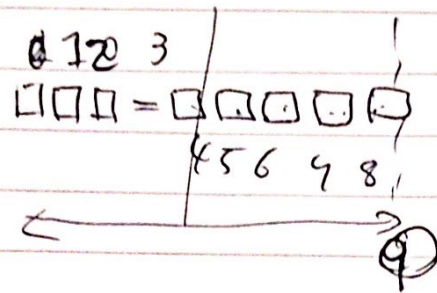 0 1 2 3
□□□=□□□□□
4 5 6 7 8
9